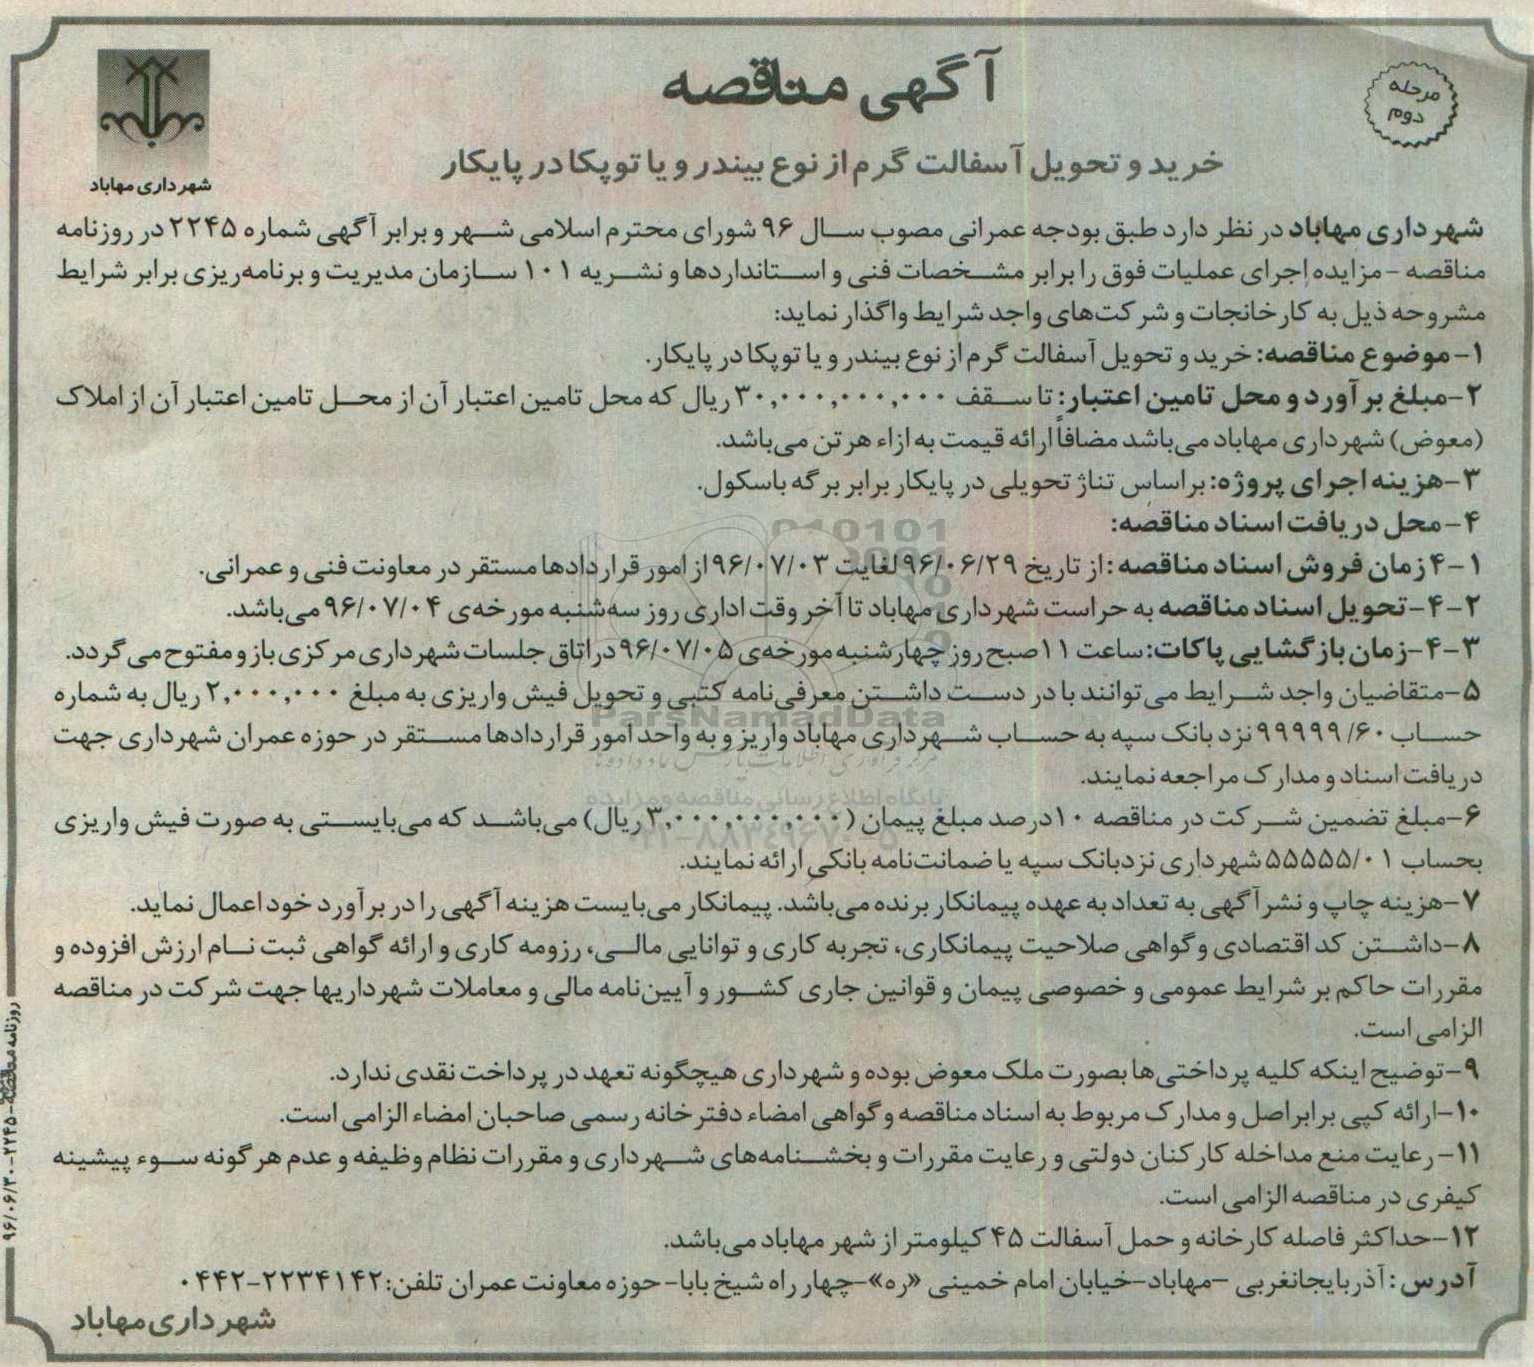 مرحله
دوم
آگهی مناقصه
شهرداری مهاباد
خرید و تحویل آسفالت گرم از نوع بیندر و یا توپکا در پایکار
شهرداری مهاباد در نظر دارد طبق بودجه عمرانی مصوب سال ۹۶ شورای محترم اسلامی شهر و برابر آگهی شماره ۲۲۴۵ در روزنامه
مناقصه - مزایده اجرای عملیات فوق را برابر مشخصات فنی و استانداردها و نشریه ۱۰۱ سازمان مدیریت و برنامه‌ریزی برابر شرایط
مشروحه ذیل به کارخانجات و شرکت‌های واجد شرایط واگذار نماید:
۱-موضوع مناقصه: خرید و تحویل آسفالت گرم از نوع بیندر و یا توپکا در پایکار.
۲-مبلغ برآورد و محل تامین اعتبار: تا سقف ۳۰,۰۰۰,۰۰۰,۰۰۰ ریال که محل تامین اعتبار آن از محل تامین اعتبار آن از املاک
(معوض) شهرداری مهاباد می‌باشد مضافاً ارائه قیمت به ازاء هر تن می‌باشد.
۳-هزینه اجرای پروژه: براساس تناژ تحویلی در پایکار برابر برگه باسکول.
۴-محل دریافت اسناد مناقصه:
۴-۱ زمان فروش اسناد مناقصه: از تاریخ ۹۶/۰۶/۲۹ لغایت ۹۶/۰۷/۰۳ از امور قراردادها مستقر در معاونت فنی و عمرانی.
۴-۲-تحویل اسناد مناقصه به حراست شهرداری مهاباد تا آخر وقت اداری روز سه‌شنبه مورخه‌ی ۹۶/۰۷/۰۴ می‌باشد.
۴-۳-زمان بازگشایی پاکات: ساعت ۱۱ صبح روز چهارشنبه مورخه‌ی ۹۶/۰۷/۰۵ در اتاق جلسات شهرداری مرکزی باز و مفتوح می گردد.
۵-متقاضیان واجد شرایط می‌توانند با در دست داشتن معرفی‌نامه کتبی و تحویل فیش واریزی به مبلغ ۲,۰۰۰,۰۰۰ ریال به شماره
حساب ۹۹۹۹۹/۶۰ نزد بانک سپه به حساب شهرداری مهاباد واریز و به واحد امور قراردادها مستقر در حوزه عمران شهرداری جهت
دریافت اسناد و مدارک مراجعه نمایند.
۶-مبلغ تضمین شرکت در مناقصه ۱۰درصد مبلغ پیمان (۳,۰۰۰,۰۰۰,۰۰۰ ریال) می‌باشد که می‌بایستی به صورت فیش واریزی
بحساب ۵۵۵۵۵/۰۱ شهرداری نزدبانک سپه یا ضمانت‌نامه بانکی ارائه نمایند.
۷-هزینه چاپ و نشر آگهی به تعداد به عهده پیمانکار برنده می‌باشد. پیمانکار می‌بایست هزینه آگهی را در برآورد خود اعمال نماید.
۸-داشتن کد اقتصادی و گواهی صلاحیت پیمانکاری، تجربه کاری و توانایی مالی، رزومه کاری و ارائه گواهی ثبت نام ارزش افزوده و
مقررات حاکم بر شرایط عمومی و خصوصی پیمان و قوانین جاری کشور و آیین‌نامه مالی و معاملات شهرداریها جهت شرکت در مناقصه
الزامی است.
۹-توضیح اینکه کلیه پرداختی‌ها بصورت ملک معوض بوده و شهرداری هیچگونه تعهد در پرداخت نقدی ندارد.
۱۰-ارائه کپی برابر اصل و مدارک مربوط به اسناد مناقصه و گواهی امضاء دفترخانه رسمی صاحبان امضاء الزامی است.
۱۱-رعایت منع مداخله کارکنان دولتی و رعایت مقررات و بخشنامه‌های شهرداری و مقررات نظام وظیفه و عدم هرگونه سوء پیشینه
کیفری در مناقصه الزامی است.
۱۲-حداکثر فاصله کارخانه و حمل آسفالت ۴۵ کیلومتر از شهر مهاباد می‌باشد.
آدرس: آذربایجانغربی -مهاباد-خیابان امام خمینی «ره»-چهار راه شیخ بابا- حوزه معاونت عمران تلفن: ۲۲۳۴۱۴۲-۰۴۴۲
شهرداری مهاباد
روزنامه مناقصه-۲۲۴۵-۹۶/۰۶/۳۰
ParsNamadData
پایگاه اطلاع رسانی مناقصه و مزایده